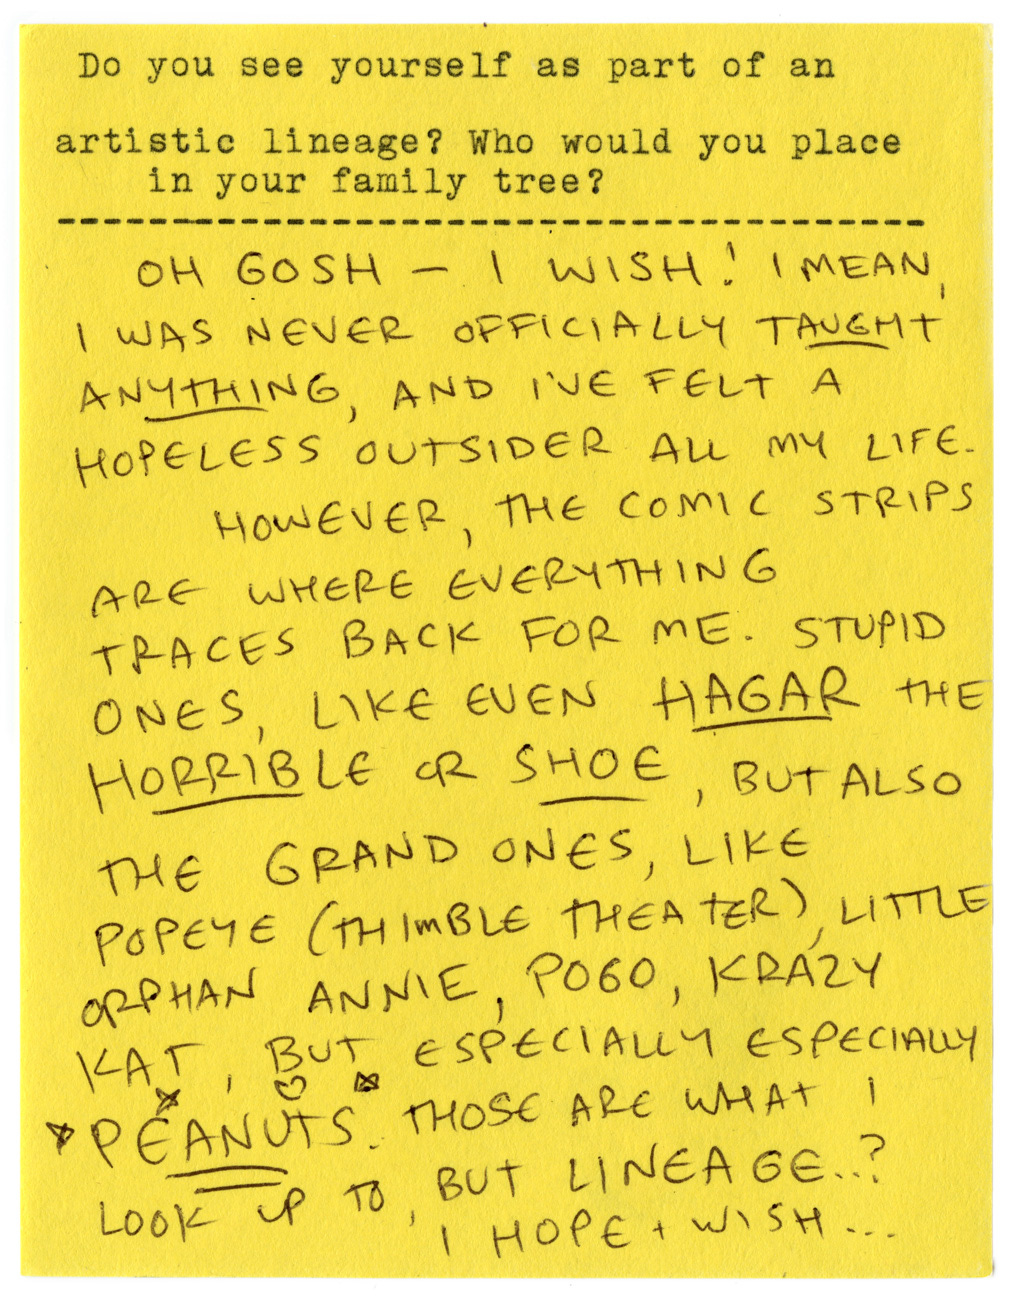 Do you see yourself as part of an
artistic lineage? Who would you place
in your family tree?
OH GOSH – I WISH! I MEAN,
I WAS NEVER OFFICIALLY TAUGHT
ANYTHING, AND I'VE FELT A
HOPELESS OUTSIDER ALL MY LIFE.
HOWEVER, THE COMIC STRIPS
ARE WHERE EVERYTHING
TRACES BACK FOR ME. STUPID
ONES, LIKE EVEN HAGAR THE
HORRIBLE OR SHOE, BUT ALSO
THE GRAND ONES, LIKE
POPEYE (THIMBLE THEATER), LITTLE
ORPHAN ANNIE, POGO, KRAZY
KAT, BUT ESPECIALLY ESPECIALLY
PEANUTS. THOSE ARE WHAT I
LOOK UP TO, BUT LINEAGE..?
I HOPE + WISH...